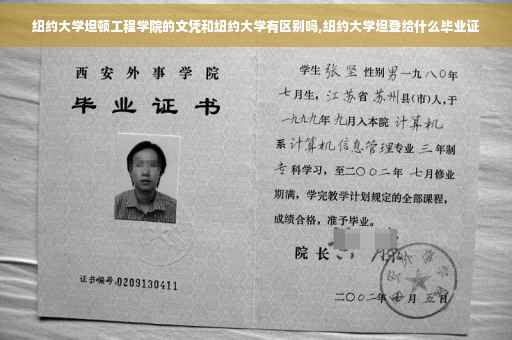 纽约大学坦顿工程学院的文凭和纽约大学有区别吗,纽约大学坦登给什么毕业证
西安外事学院
毕业证书
证书编号:0209130411
学生 张坚 性别男一九八0年
七月生，江苏省苏州县(市)人,于
一九九九年九月入本院 计算机
系计算机信息管理专业 三 年制
专科学习，至二〇〇二年 七月修业
期满，学完教学计划规定的全部课程，
成绩合格，准予毕业。
院长
二〇〇二年 月 五日